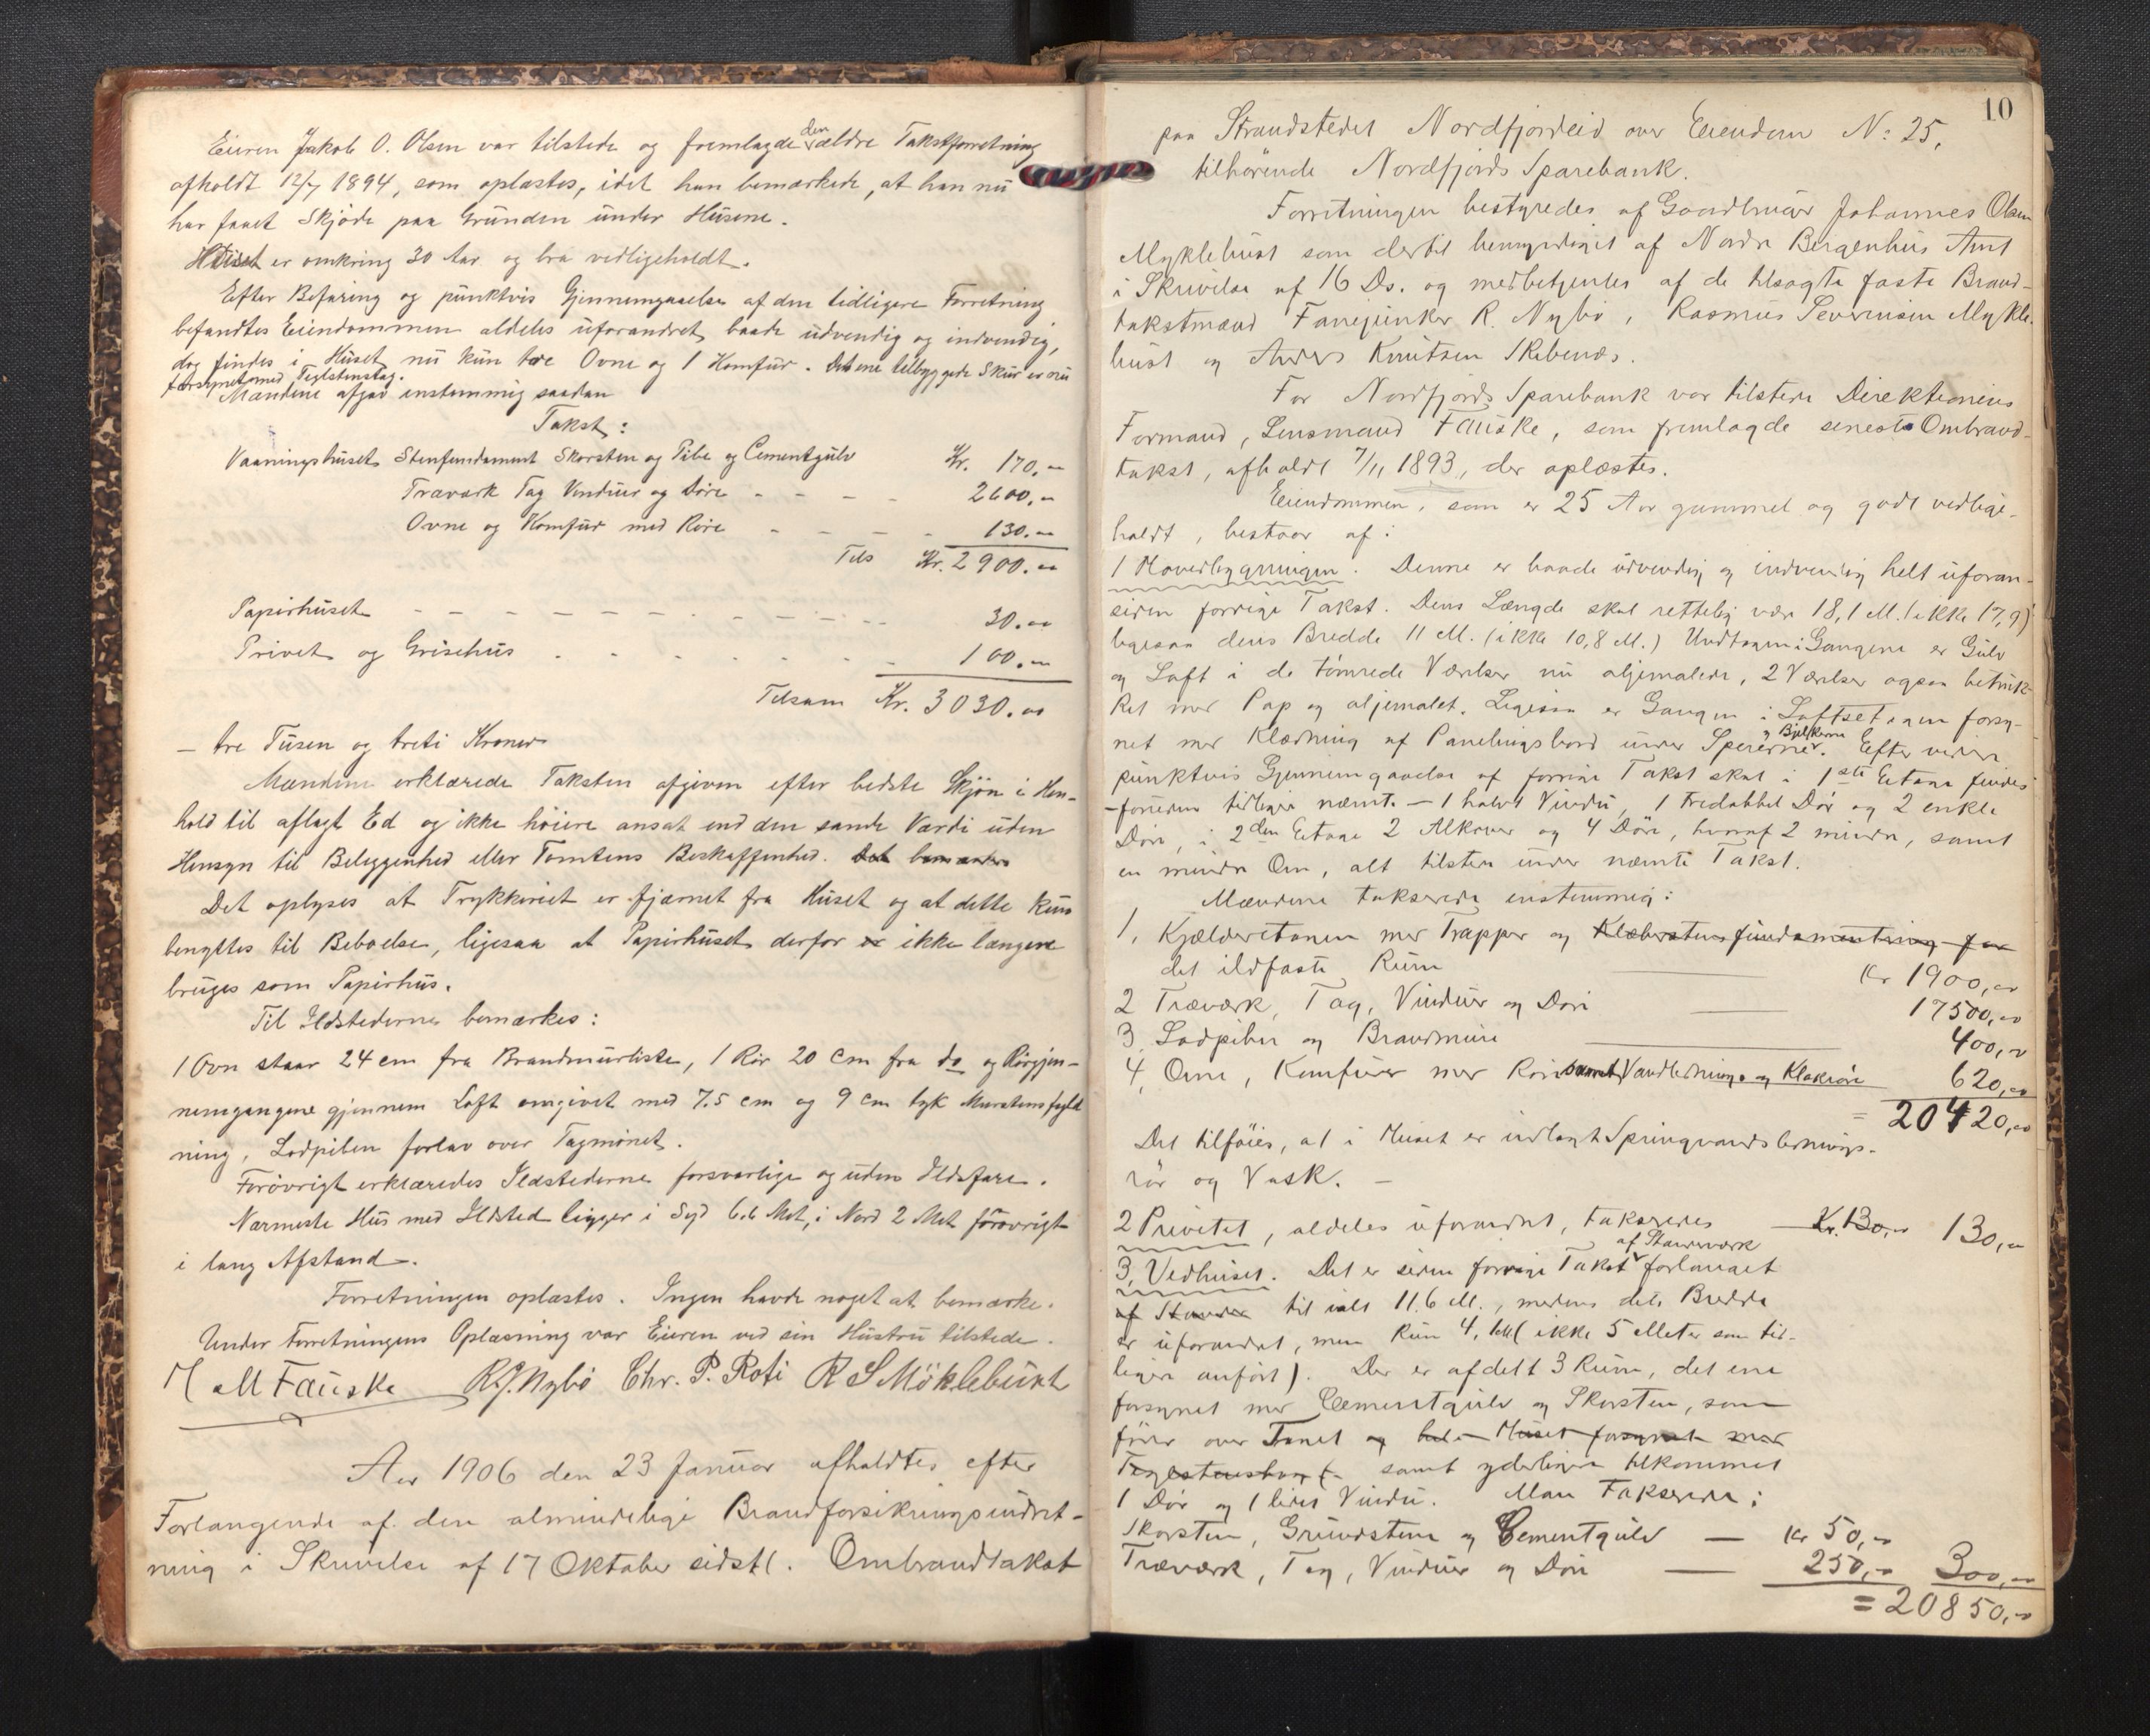 Eieren Jakob O. Olsen var tilstede og fremlagde den ældre Takstforretning
afholdt 12/7 1894, som oplæstes, idet han bemærkede, at han nu
har faaet Skjøde paa Grunden under Husene.
Huset er omkring 30 Aar og bra vedligeholdt.
Efter Befaring og punktvis Gjennemgaaelse af den tidligere Forretning
befandtes Eiendommen aldeles uforandret baade udvendig og indvendig,
dog findes i Huset nu kun tre Ovne og 1 Komfur. Det ene tilbyggede Skur er nu
forsynet med Teglstenstag.
Mændene afgav enstemmig saadan
Takst:
Vaaningshuset Stenfundament Skorsten og Pibe og Cementgulv Kr. 170.00
Træværk Tag Vinduer og Døre - - - - 2600.00
Ovne og Komfur med Röre - - - - 130.00
Tils Kr. 2900.00
Papirhuset - - - - - - - - - 30.00
Privet og Grisehus - - - - - - 100.00
Tilsam Kr. 3030.00
– tre Tusen og treti Kroner
Mændene erklærede Taksten afgiven efter bedste Skjøn i Hen-
hold til aflagt Ed og ikke høiere ansat end den sande Værdi uden
Hensyn til Beliggenhed eller Tomtens Beskaffenhed. Det bemærkes
Det oplyses at Trykkeriet er fjærnet fra Huset og at dette kun
benyttes til Beboelse, ligesaa at Papirhuset derfor er ikke længere
bruges som Papirhus.
Til Ildstederne bemærkes:
1 Ovn staar 24 cm fra Brandmurliste, 1 Rör 20 cm fra do og Rörgjen-
nemgangene gjennem Loft omgivet med 7.5 cm og 9 cm tyk Murstensfyld
ning. Lodpiben forlav over Tagmønet.
Forøvrigt erklæredes Ildstederne forsvarlige og uden Ildsfare.
Nærmeste Hus med Ildsted ligger i Syd 6.6 Met, i Nord 2 Met forøvrigt
i lang Afstand.
Forretningen oplæstes. Ingen havde noget at bemærke.
Under Forretningens Oplæsning var Eieren ved sin Hustru tilstede.
M M Fauske R.J. Nybö Chr. P. Roti R S Möklebust
Aar 1906 den 23 Januar afholdtes efter
Forlangende af den almindelige Brandforsikringsindret-
ning i Skrivelse af 17 Oktober sidstl. Ombrandtakst
10
paa Strandstedet Nordfjordeid over Eiendom N: 25,
tilhørende Nordfjords Sparebank.
Forretningen bestyredes af Gaardbruger Johannes Olsen
Myklebust som dertil bemyndiget af Nordre Bergenhus Amt
i Skrivelse af 16 Ds. og medbetjentes af de tilsagte faste Brand-
takstmænd Fanejunker R. Nybö, Rasmus Severinsen Mykle-
bust og Anders Knutsen Skibenæs.
For Nordfjords Sparebank var tilstede Direktionens
Formand, Lensmand Fauske, som fremlagde seneste Ombrand-
takst, afholdt 7/11 1893, der oplæstes.
Eiendommen, som er 25 Aar gammel og godt vedlige-
holdt, bestaar af:
1 Hovedbygningen. Denne er baade udvendig og indvendig helt uforan-
siden forrige Takst. Dens Længde skal rettelig være 18,1 M. (ikke 17,9)
ligesaa dens Bredde 11 M. (ikke 10,8 M.) Undtagen i Gangene er Gulv
og Loft i de tømrede Værelser nu oljemalede, 2 Værelser ogsaa betræk-
ket med Pap og oljemalet. Ligesaa er Gangen i Loftsetagen forsy-
net med Klædning af Panelingsbord under Sperrerne og Bjelkerne. Efter videre
punktvis Gjennemgaaelse af forrige Takst skal i 1ste Etage findes
– foruden tidligere nævnte – 1 halvt Vindu, 1 tredobbel Dør og 2 enkle
Døre, i 2den Etage 2 Alkover og 4 Døre, hvoraf 2 mindre, samt
en mindre Ovn, alt tilstede under nævnte Takst.
Mændene takserede enstemmig:
1. Kjælderetagen med Trapper og Klæberstensfundamentering for
det ildfaste Rum Kr 1900,00
2 Træværk, Tag, Vinduer og Døre 17500,00
3. Lodpiber og Brandmure 400,00
4, Ovne, Komfurer med Rör samt Vandlednings og Kloakröre 620,00
= 20420,00
Det tilføies, at i Huset er indlagt Springvandslednings-
rör og Vask. –
2 Privetet, aldeles uforandret, takseredes Kr. 130,00 130,00
3, Vedhuset. Det er siden forrige Takst af Stavværk forlænget
af Stander til ialt 11.6 M., medens dets Bredde
er uforandret, men kun 4,1 M (ikke 5 Meter som tid-
ligere anført). Der er afdelt 3 Rum, det ene
forsynet med Cementgulv og Skorsten, som
fører over Taget og hele Huset forsynet med
Teglstenstag (- samt yderligere tilkommet
1 Dør og 1 lidet Vindu. Man Takserede:
Skorsten, Grundstene og Cementgulv — Kr 50,00
Træværk, Tag, Vinduer og Døre — 250,00 300,00
= 20850,00